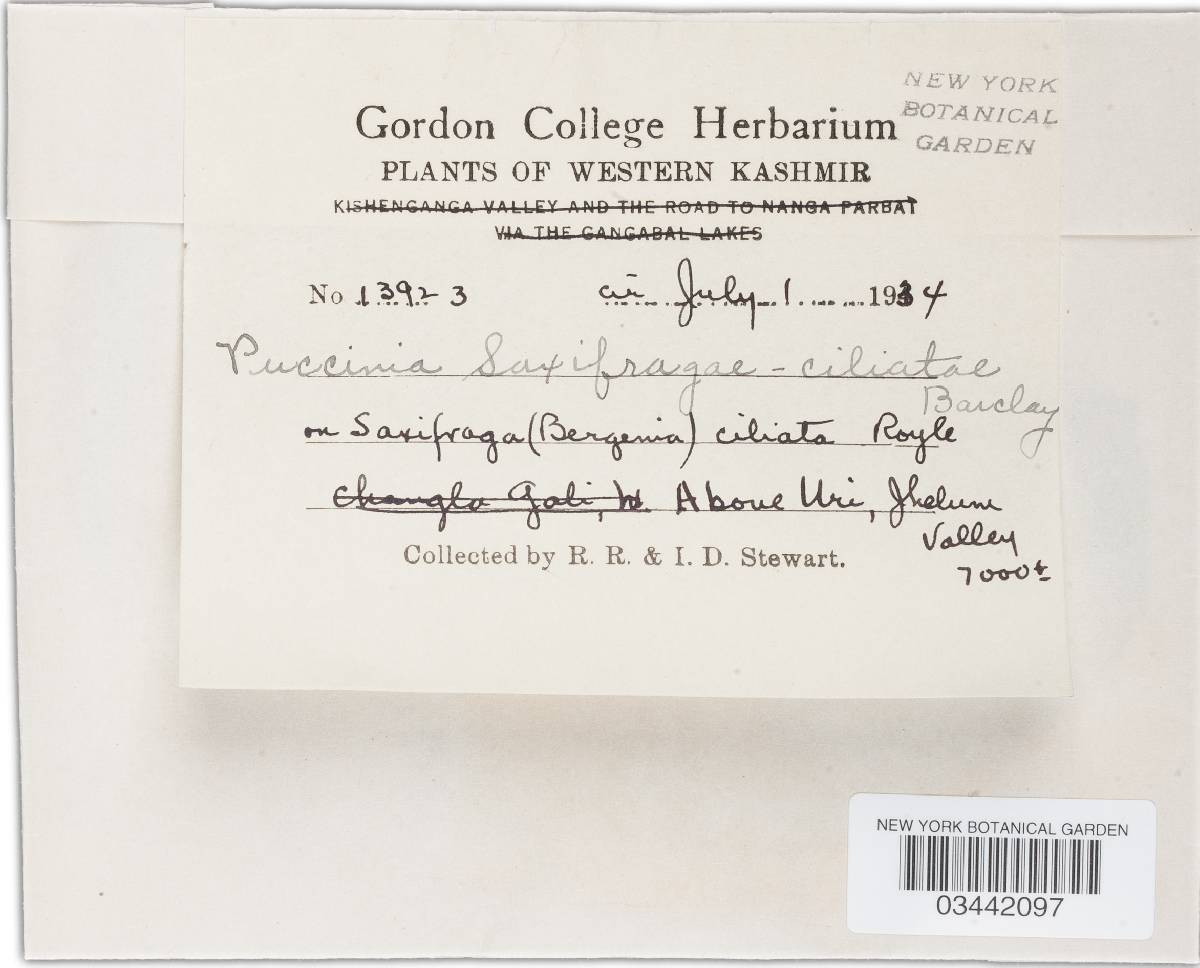 NEW YORK
BOTANICAL
GARDEN
Gordon College Herbarium
PLANTS OF WESTERN KASHMIR
KISHENGANGA VALLEY AND THE ROAD TO NANGA PARBAT
VIA THE GANGABAL LAKES
No 13923 cir July 1 1934
Puccinia Saxifragae-ciliatae
Barclay
on Saxifraga (Bergenia) ciliata Royle
Changla Gali, Above Uri, Jhelum
Valley
7000 ±
Collected by R. R. & I. D. Stewart.
NEW YORK BOTANICAL GARDEN
03442097